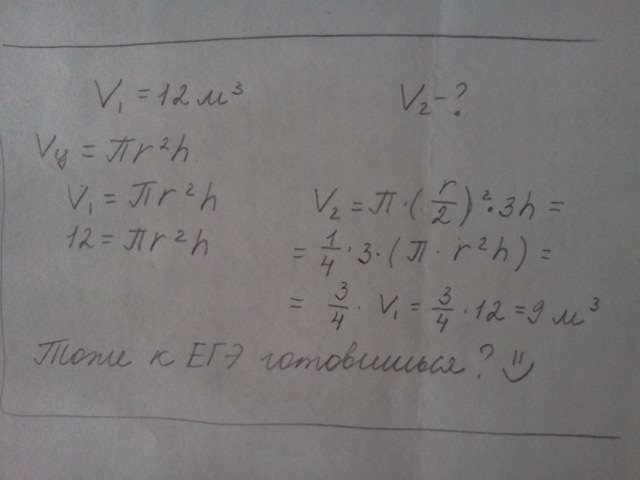 V₁ = 12 м³
V₂ - ?
Vц = πr²h
V₁ = πr²h
12 = πr²h
V₂ = π · (r/2)² · 3h =
= 1/4 · 3 · (π · r²h) =
= 3/4 · V₁ = 3/4 · 12 = 9 м³
Тоже к ЕГЭ готовишься? =)